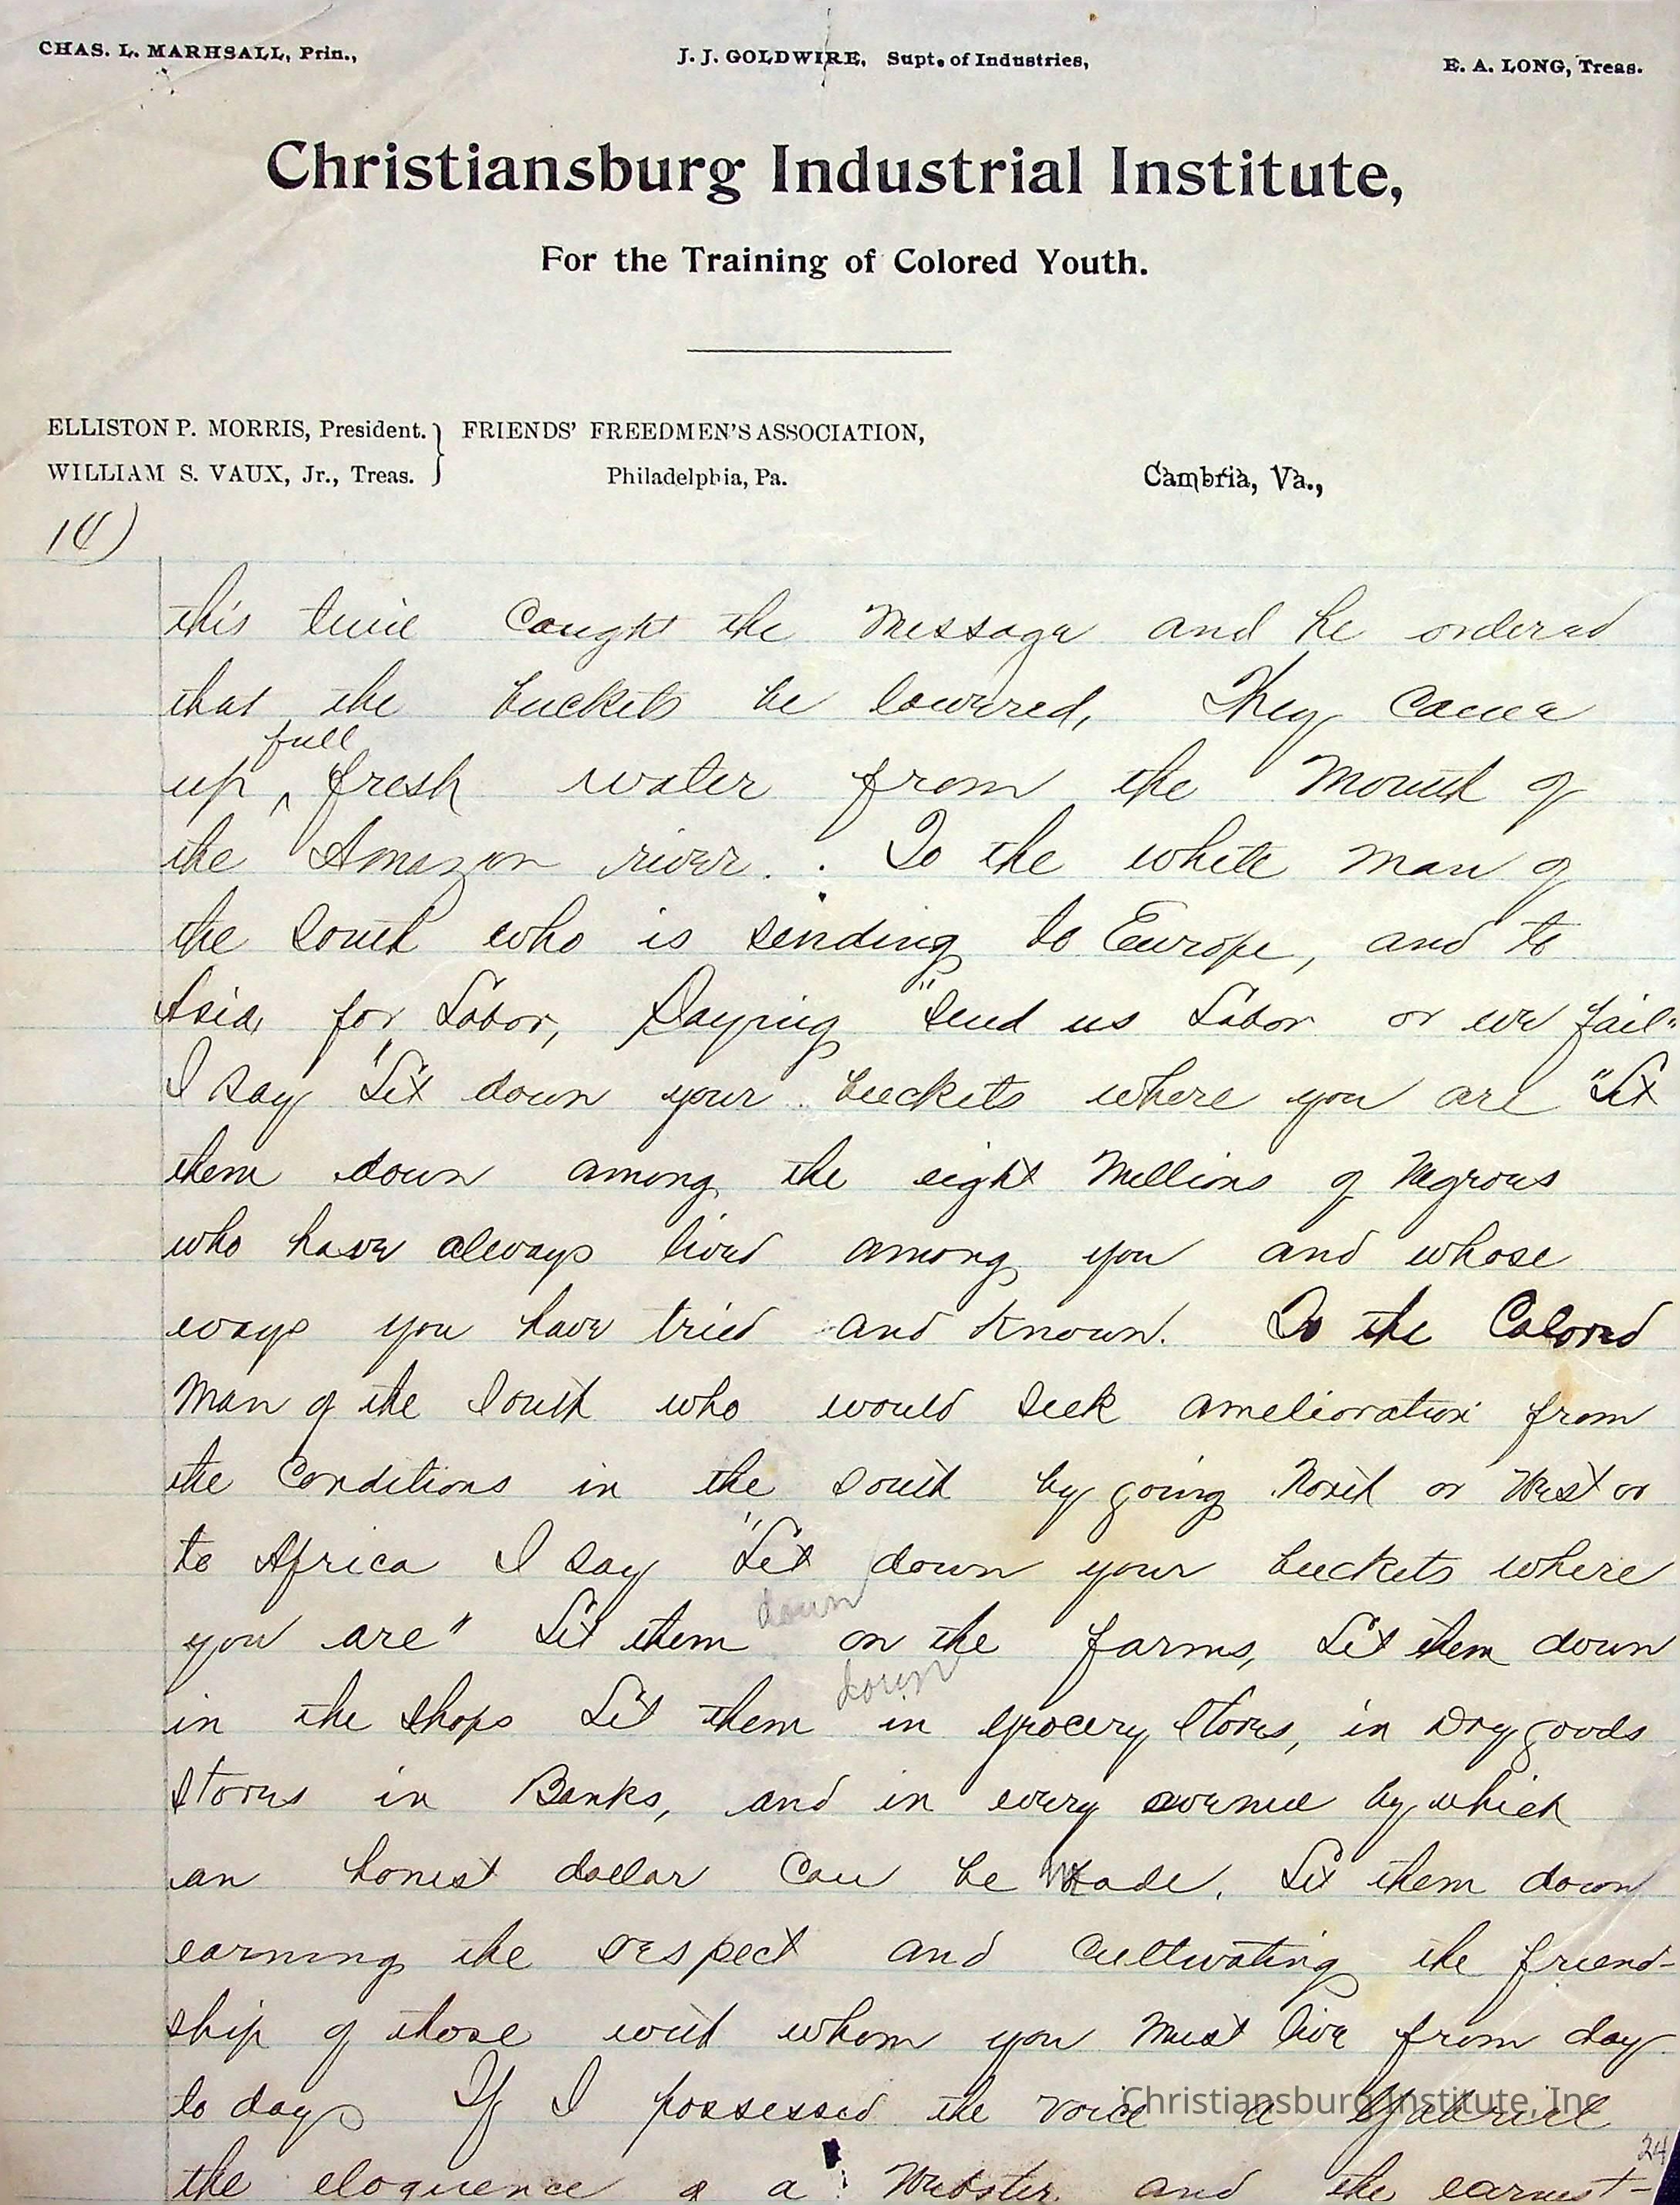 CHAS. L. MARHSALL, Prin., J. J. GOLDWIRE, Supt. of Industries, E. A. LONG, Treas.
Christiansburg Industrial Institute,
For the Training of Colored Youth.
ELLISTON P. MORRIS, President. } FRIENDS' FREEDMEN'S ASSOCIATION,
WILLIAM S. VAUX, Jr., Treas. } Philadelphia, Pa. Cambria, Va.,
14)
this time Caught the Message and he ordered
that the buckets be lowered, They Came
full
up ^ fresh water from the Mouth of
the Amazon river. . To the white man of
the South who is sending to Europe, and to
Asia, for Labor, Saying "Send us Labor or we fail"
I say "Let down your buckets where you are "Let
them down among the eight Millions of Negroes
who have always lived among you and whose
ways you have tried and known. To the Colored
Man of the South who would seek amelioration from
the Conditions in the South by going North or West or
to Africa I say "Let down your buckets where
down
you are" Let them on the farms, Let them down
down
in the shops Let them in grocery stores, in Dry goods
stores in Banks, and in every avenue by which
an honest dollar Can be Made. Let them down
earning the respect and Cultivating the friend-
ship of those with whom you Must live from day
to day If I possessed the voice a Gabriel
Christiansburg Institute, Inc
24
the eloquence of a Webster and the earnest-